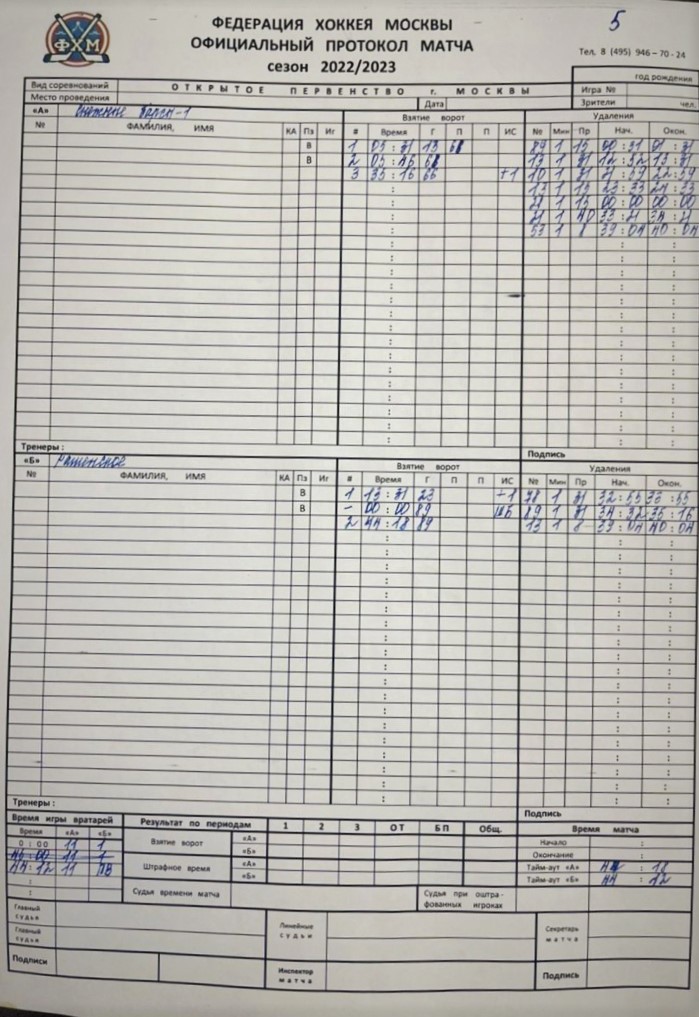 ФЕДЕРАЦИЯ ХОККЕЯ МОСКВЫ
5
ОФИЦИАЛЬНЫЙ ПРОТОКОЛ МАТЧА
Тел. 8 (495) 946-70-24
сезон 2022/2023
ФХМ
год рождения
Вид соревнований ОТКРЫТОЕ ПЕРВЕНСТВО г. МОСКВЫ Игра №
Место проведения Дата Зрители чел.
«А» Взятие ворот Удаления
№ ФАМИЛИЯ, ИМЯ КА Пз Иг # Время Г П П ИС № Мин Пр Нач. Окон.
В 1 13 89 1 15 00:31 01:31
В 2 13 1 31 12:52 13:31
3 35:16 66 +1 10 1 31 21:59 22:59
13 1 15 23:33 24:33
21 1 15 00:00 00:00
21 1 40 33:21 34:21
53 1 8 39:04 40:04
Тренеры: Подпись
«Б» Раменское Взятие ворот Удаления
№ ФАМИЛИЯ, ИМЯ КА Пз Иг # Время Г П П ИС № Мин Пр Нач. Окон.
В 1 13:31 23 -1 78 1 31 32:55 33:55
В - 00:00 89 89 1 31 34:32 35:16
2 44:18 89 13 1 8 39:04 40:04
Тренеры: Подпись
Время игры вратарей Результат по периодам 1 2 3 ОТ БП Общ. Время матча
Время «А» «Б» Взятие ворот «А» Начало :
0:00 11 1 «Б» Окончание :
45:00 11 1 Штрафное время «А» Тайм-аут «А» : 18
44:12 11 ПВ «Б» Тайм-аут «Б» 44 : 12
Судья времени матча Судья при оштрафованных игроках
Главный судья Линейные судьи Секретарь матча
Главный судья
Подписи Инспектор матча Подпись